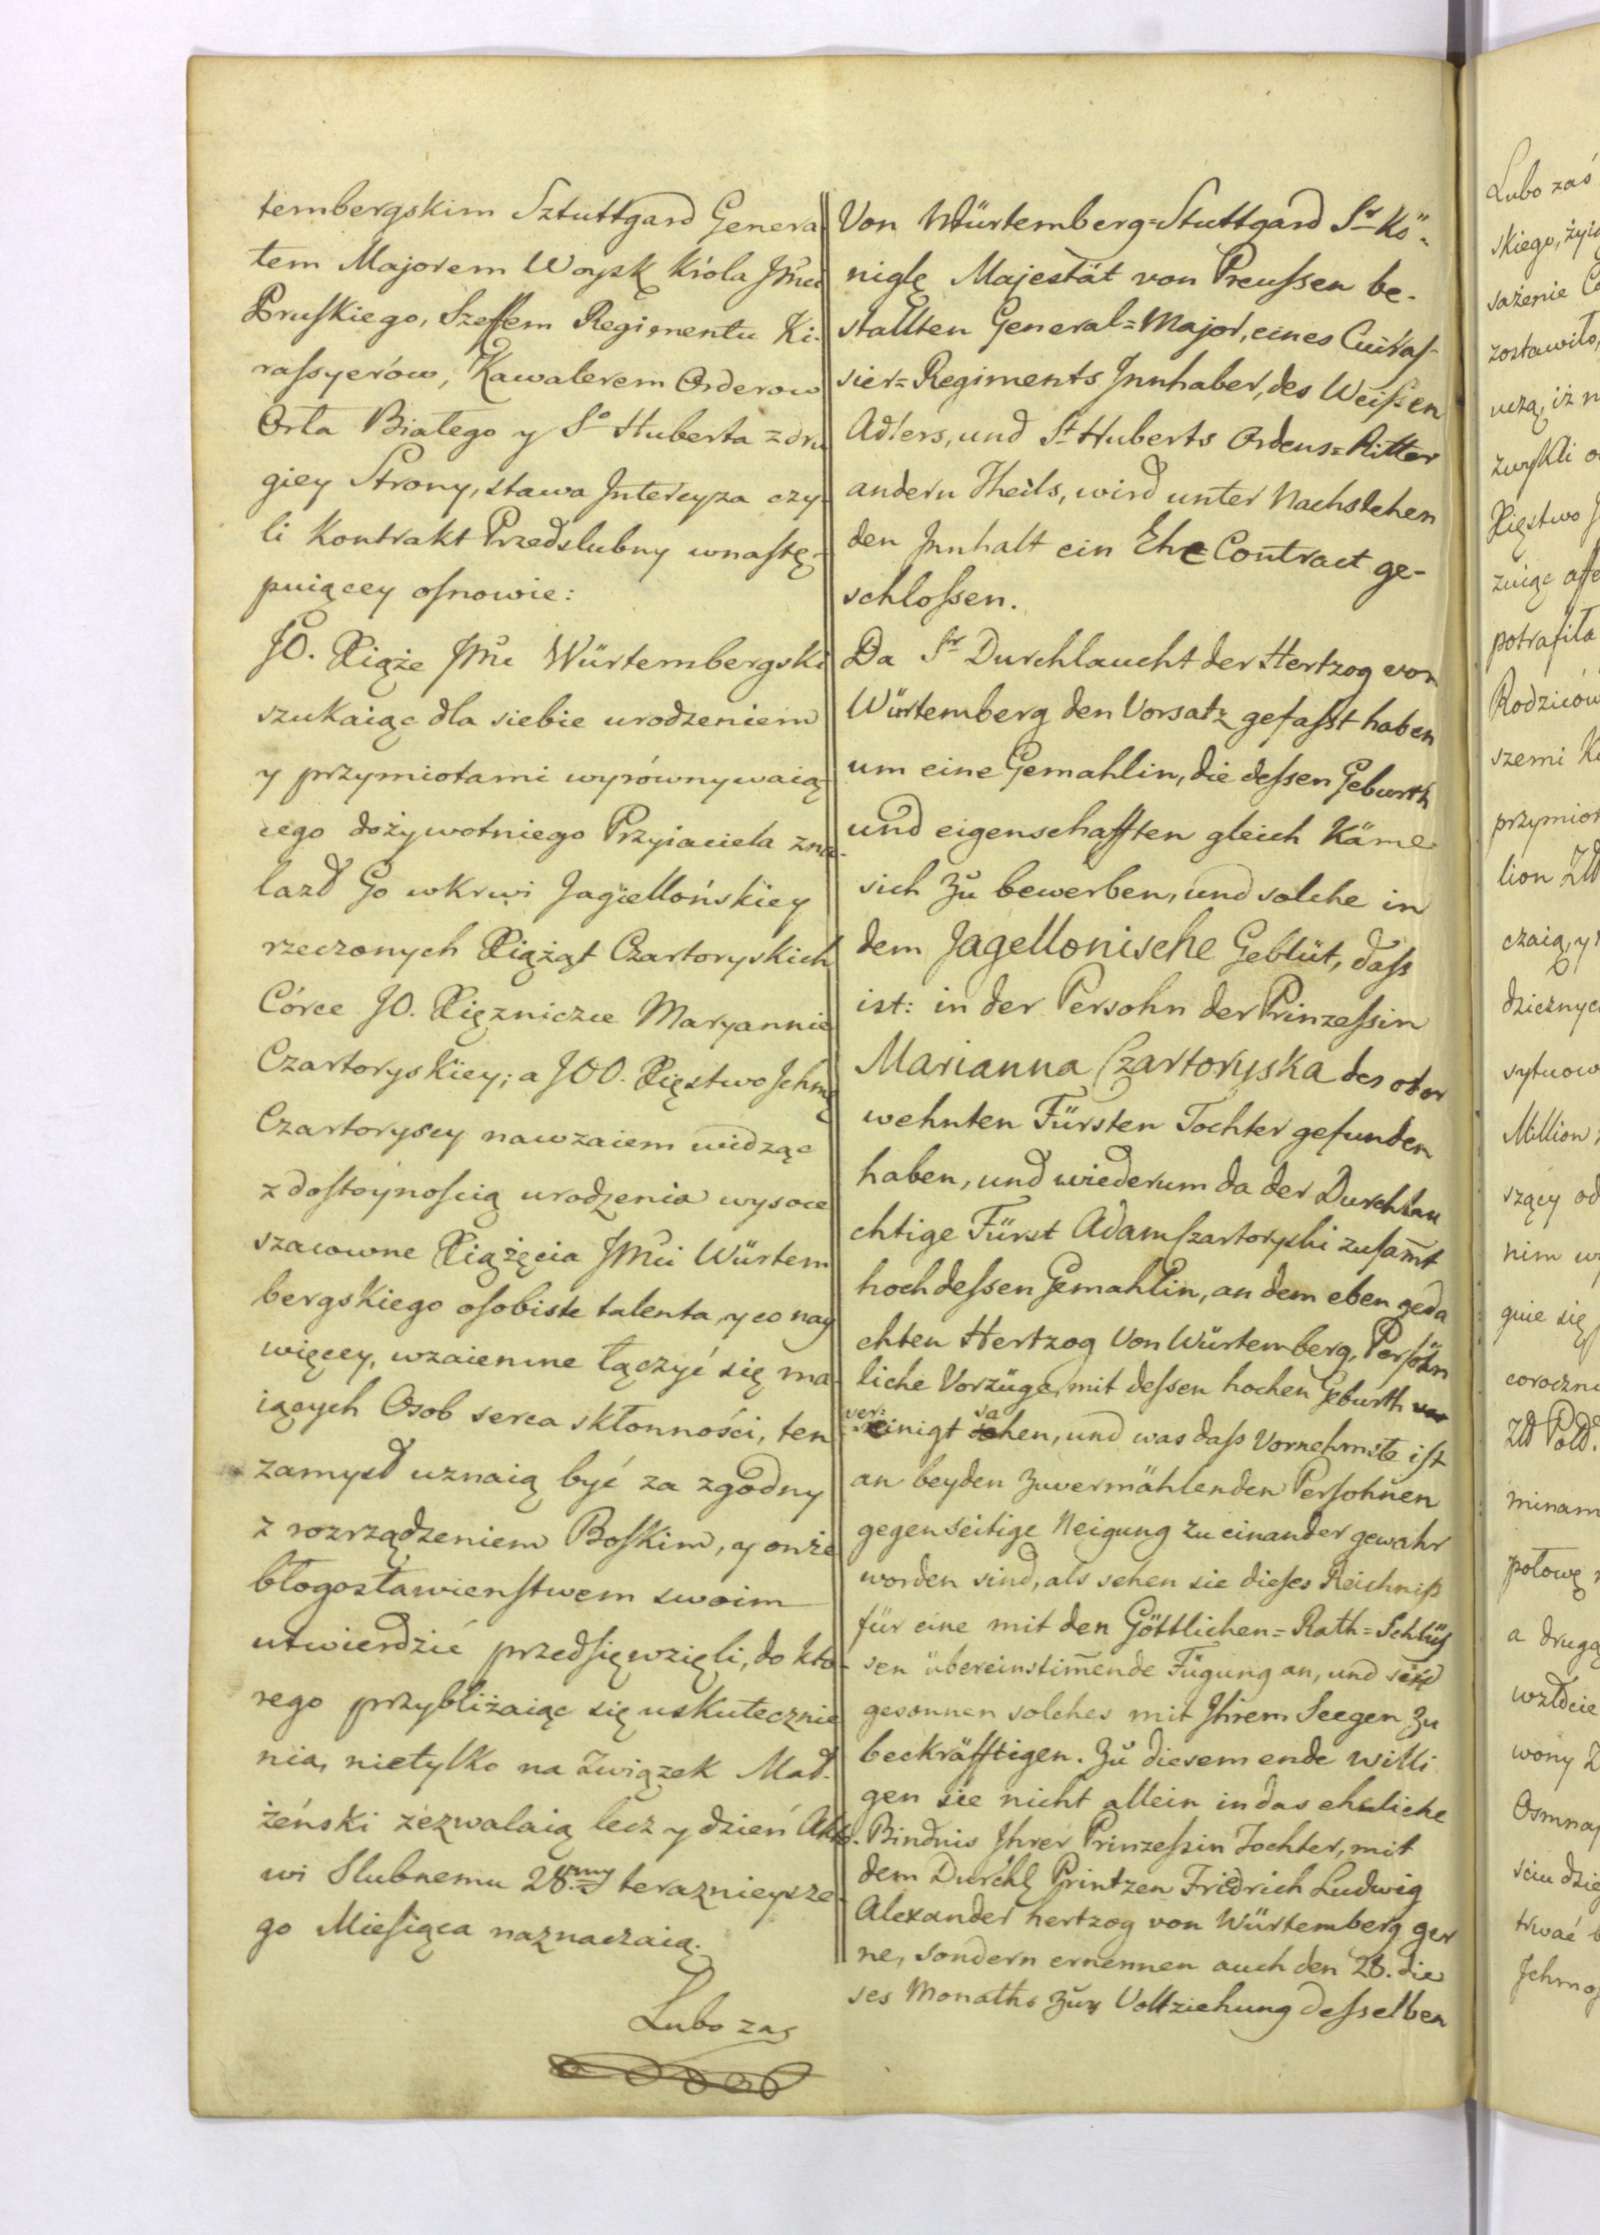 tembergskim Sztuttgard Genera
łem Majorem Woysk Króla JMci
Pruskiego, Szeffem Regimentu Ki-
rassyerów, Kawalerem Orderow
Orła Białego y So Huberta z dru
giey Strony, stawa Intercyza czy-
li Kontrakt Przedslubny wnastę-
puiącey osnowie:
JO. Xiąże JMc Würtembergski
szukaiąc dla siebie urodzeniem
y przymiotami wyrównywaią-
cego dożywotniego Przyiaciela zna-
lazł Go wKrwi Jagiellońskiey
rzeczonych Xiążąt Czartoryskich
Córce JO. Xięzniczce Maryannie
Czartoryskiey; a JOO. Xięstwo Jchmę
Czartoryscy nawzaiem widząc
z dostoynością urodzenia wysoce
szacowne Xiążęcia JMci Würtem
bergskiego osobiste talenta, y co nay
więcey, wzaiemne łączyć się ma-
iących Osob serca skłonności, ten
zamysł uznaią być za zgodny
z rozrządzeniem Boskim, y onże
błogosławienstwem swoim
utwierdzić przedsięwzięli, do kto-
rego przybliżaiąc się uskutecznie
nia, nietylko na związek Mał-
żeński zezwalaią lecz y dzień Akto-
wi Slubnemu 28my teraznieysze-
go Miesiąca naznaczaią.
Lubo zas
Von Würtemberg=Stuttgard Sr Kö-
niglę Majestät von Preussen be-
stallten General=Major, eines Cuiras-
sier=Regiments Innhaber, des Weissen
Adlers, und St Huberts Ordens=Ritter
andern Theils, wird unter Nachstehen
den Innhalt ein Ehe Contract ge-
schlossen.
Da Sr Durchlaucht der Hertzog von
Würtemberg den Vorsatz gefasst haben
um eine Gemahlin, die dessen Geburth
und eigenschafften gleich Käme
sich Zu bewerben, und solche in
dem Jagellonische Geblüt, dass
ist: in der Persohn der Prinzessin
Marianna Czartoryska des ober
wehnten Fürsten Tochter gefunden
haben, und wiederum da der Durchlau
chtige Fürst Adam Czartoryski zusam̄t
hochdessen Gemahlin, an dem eben geda
chten Hertzog Von Würtemberg, Persöhn
liche Vorzüge, mit dessen hochen Geburth
vereinigt sahen, und was dass Vornehmste ist
an beyden zuvermählenden Persohnen
gegenseitige Neigung zu einander gewahr
worden sind, als sehen sie dieses
für eine mit den Göttlichen=Rath=Schlüs
sen übereinstim̄ende Fügung an, und sind
gesonnen solches mit Ihrem Seegen zu
beckräfftigen. Zu diesem ende willi
gen sie nicht allein in das eheliche
Bindnis Ihrer Prinzessin Tochter, mit
dem Durchlę Printzen Fridrich Ludwig
Alexander hertzog von Würtemberg ger
ne, sondern ernennen auch den 28. die
ses Monaths zur Vollziehung desselben
Lubo zaś
skiego, życ
sażenie
zostawiło,
uczą, iż n
zwykli o
Xięstwo
potrafiła
Rodziców
szemi
przymiot
lion Zł
czaią, y
Million
szący od
nim
coroczn
minam
połowę
a drugą
wony
trwać